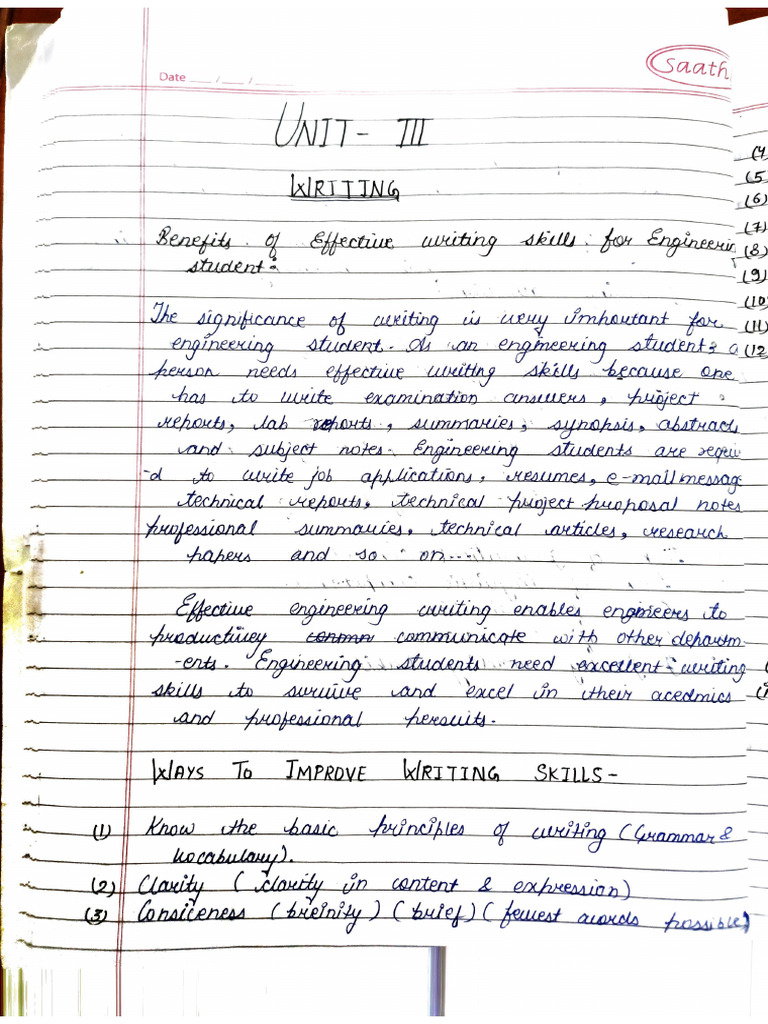 Date __/__/__
Saath
UNIT- III
WRITING
Benefits of Effective writing skills for Engineerin
student:
The significance of writing is very important for
engineering student. As an engineering student a
person needs effective writing skills because one
has to write examination answers, project
reports, lab reports, summaries, synopsis, abstracts
and subject notes. Engineering students are requi
-d to write job applications, resumes, e-mail messag
technical reports, technical project proposal notes
professional summaries, technical articles, research
papers and so on...
Effective engineering writing enables engineers to
productivey conmn communicate with other departm
-ents. Engineering students need excellent writing
skills to survive and excel in their acedmics
and professional persuits.
WAYS TO IMPROVE WRITING SKILLS-
(1) Know the basic principles of writing (Grammar &
vocabulary).
(2) Clarity (clarity in content & expression)
(3) Consiceness (breinity) (brief) (fewest words possible)
(4
(5
(6)
(7)
(8)
(9)
(10
(11)
(12